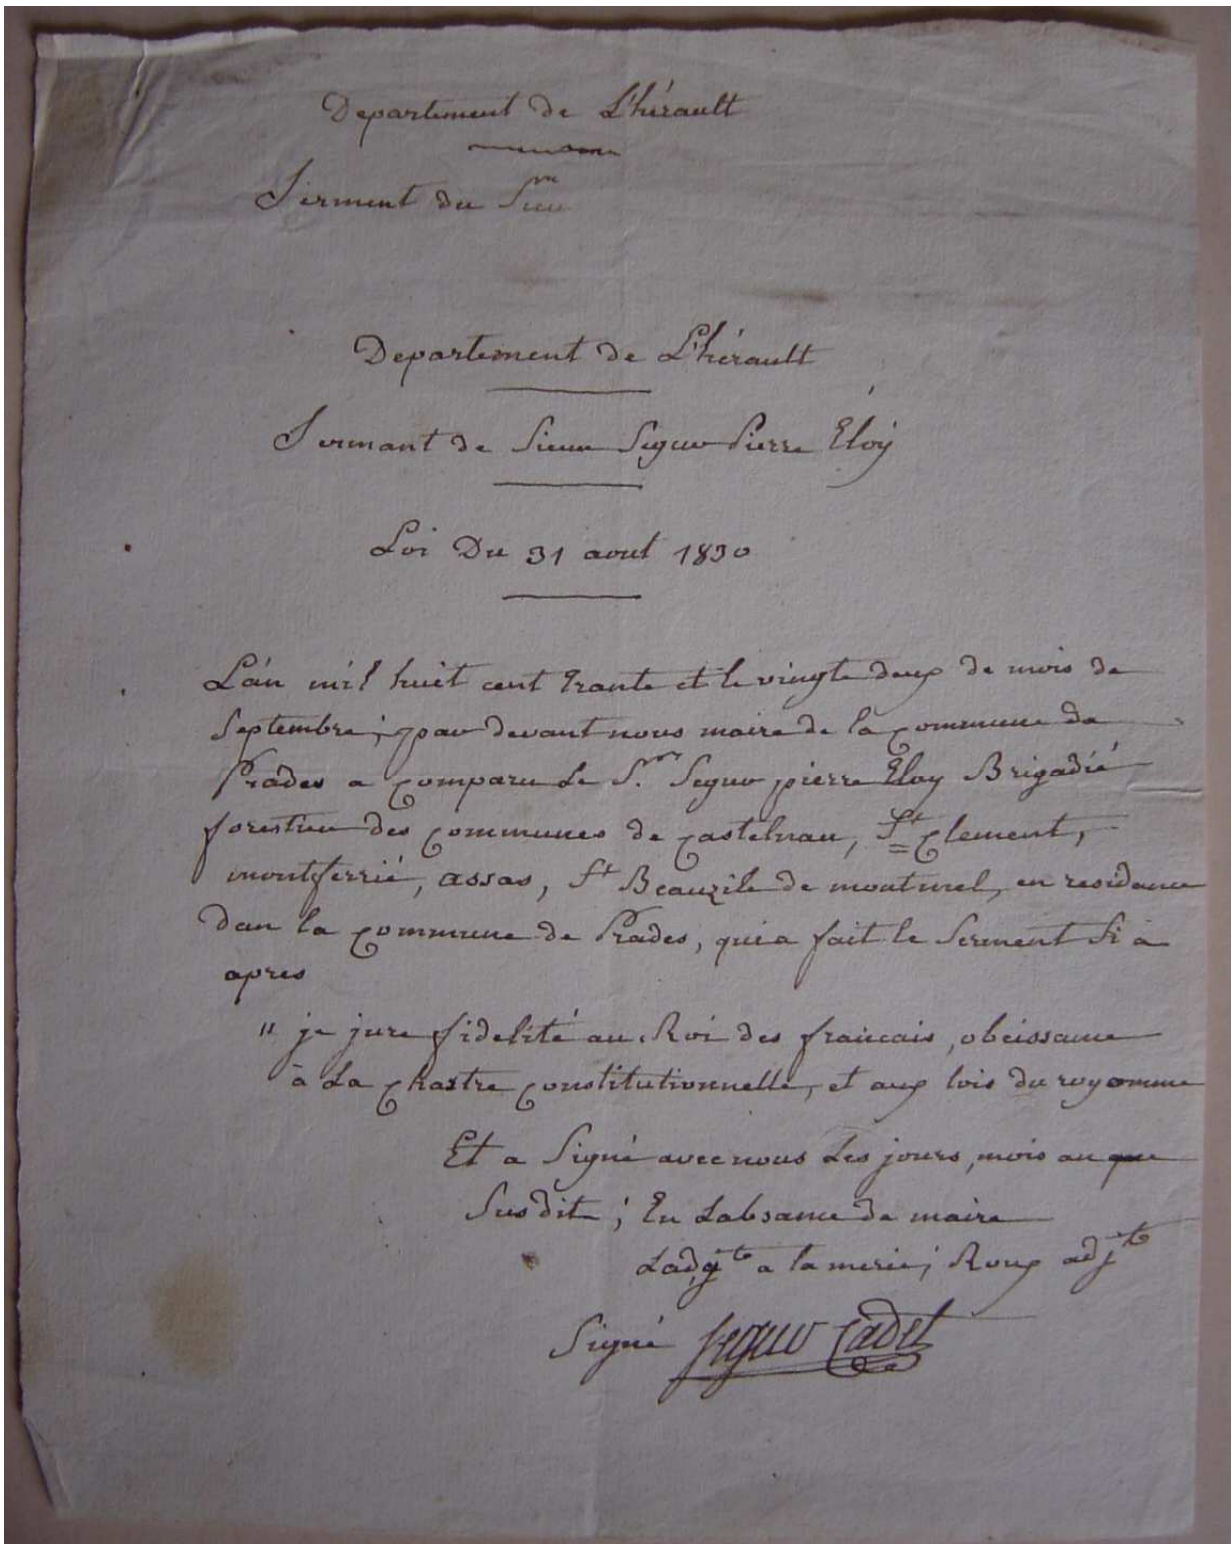 Departement de L'hérault
Serment du Sieu
Departement de L'hérault
Sermant de Sieur Segur Pierre Éloÿ
Loi Du 31 aout 1830
L'an mil huit cent trante et le vingte deux de mois de
Septembre; par devant nous maire de la commune de
Prades a comparu Le Sr. Segur pierre Eloy Brigadié
forestier des communes de castelnau, St clement,
montferrié, assas, St Beauzile de montmel, en residance
dan la commune de Prades, qui a fait le Serment Si a
apres
" je jure fidelité au Roi des francais, obeissance
à La Chastre Constitutionnelle, et aux lois du royomme
Et a Signé avec nous Les jours, mois an que
Susdit; En Labsance de maire
Ladjte a la merie; Roux adjte
Signé Segur Cadet